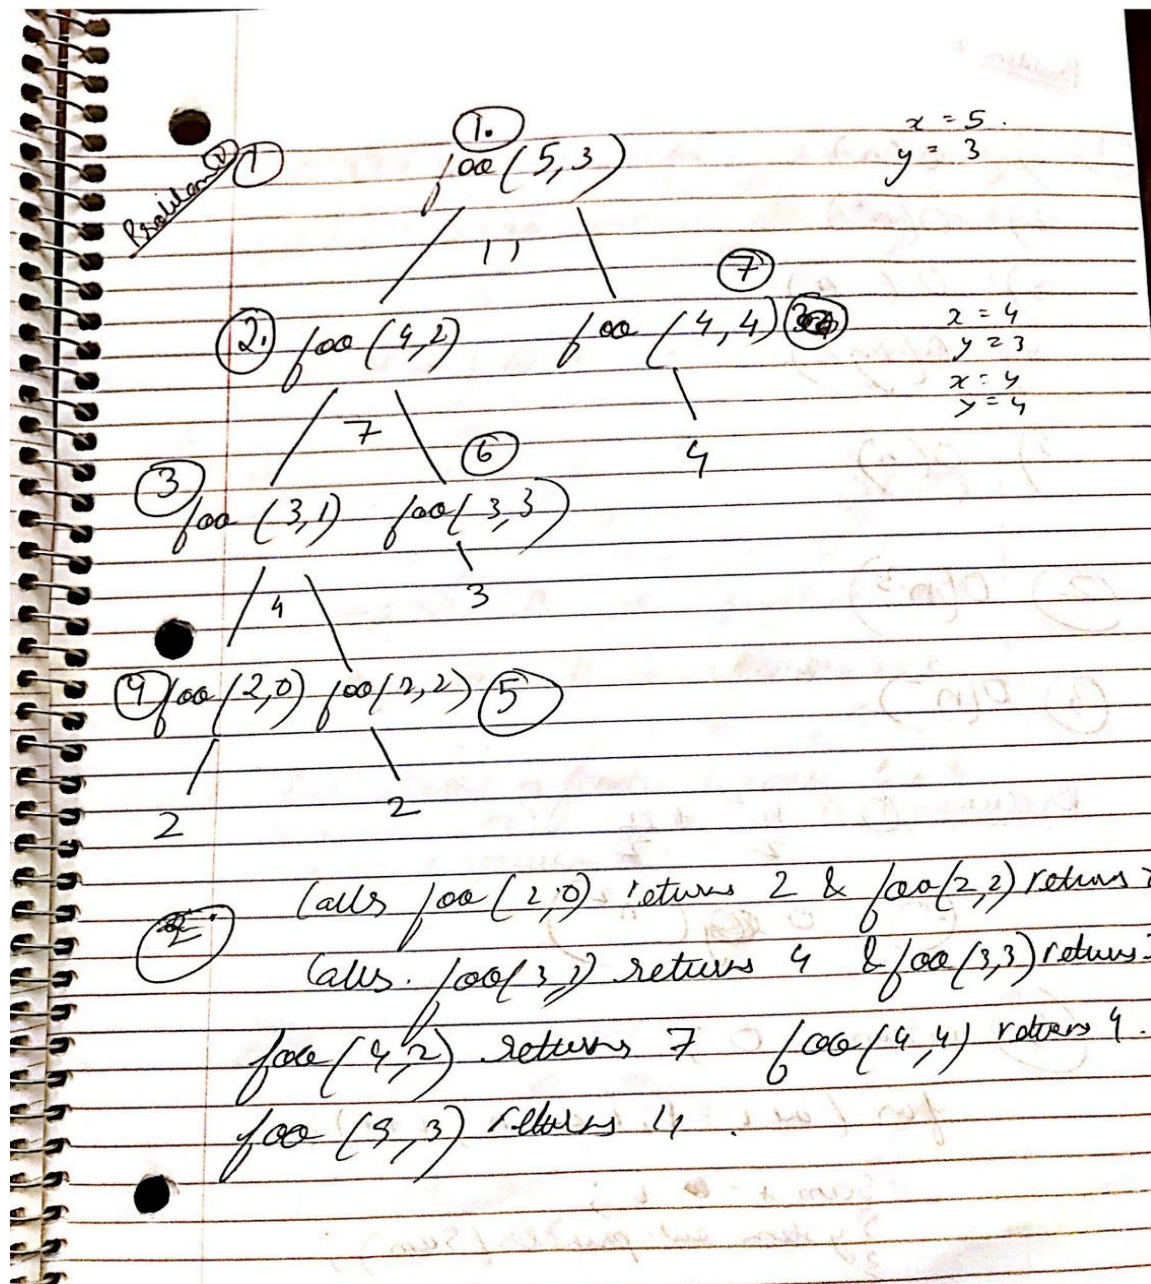 1.
x = 5.
y = 3
Problem 1
foo(5,3)
11
7
2. foo(4,2) foo(4,4)
x = 4
y = 3
x = 4
y = 4
7
6
4
3
foo(3,1) foo(3,3)
4
3
4 foo(2,0) foo(2,2) 5
2
2
Calls foo(2,0) returns 2 & foo(2,2) returns
2. Calls. foo(3,1) returns 4 & foo(3,3) returns
foo(4,2) returns 7 foo(4,4) returns 4.
foo(5,3) returns 11.